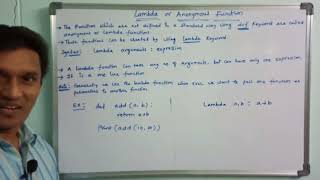 Lambda or Anonymous Function
→ The Functions which are not defined in a standard way using def keyword are called
anonymous or Lambda function.
→ These functions can be created by using Lambda keyword.
Syntax: Lambda arguments : expression
→ A Lambda function can have any no of arguments, but can have only one expression.
→ It is a one line function
Note: Generally we use the Lambda function when ever we want to pass one function as
parameters to another function.
Ex: def add (a, b):
return a+b
Print (add (10, 20))
Lambda a, b : a+b